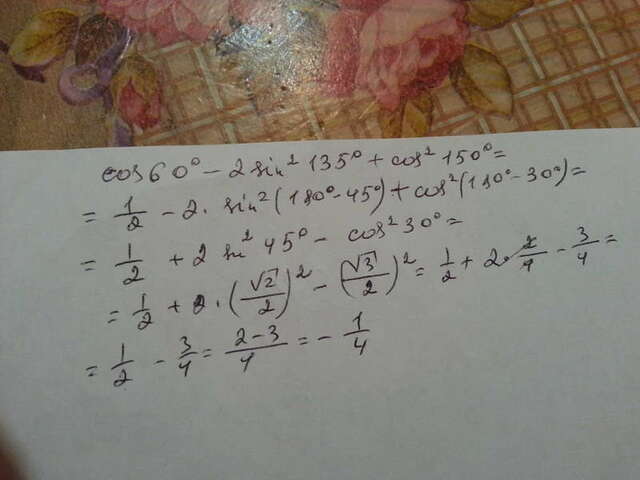 cos60° - 2sin²135° + cos²150° =
= 1/2 - 2 · sin²(180° - 45°) + cos²(180° - 30°) =
= 1/2 + 2 sin²45° - cos²30° =
= 1/2 + 2 · (√2/2)² - (√3/2)² = 1/2 + 2 · 2/4 - 3/4 =
= 1/2 - 3/4 = 2-3/4 = - 1/4